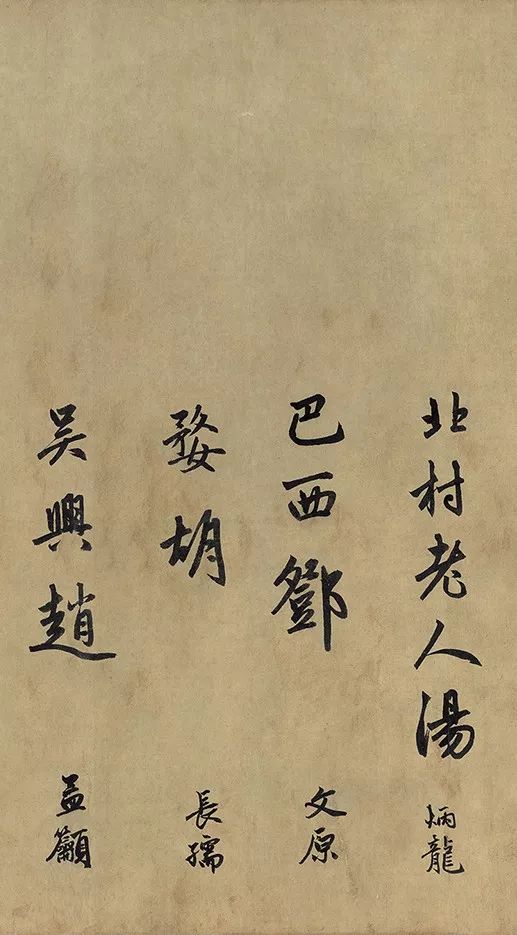 北村老人湯炳龍
巴西鄧文原
婺胡長孺
吳興趙孟籲